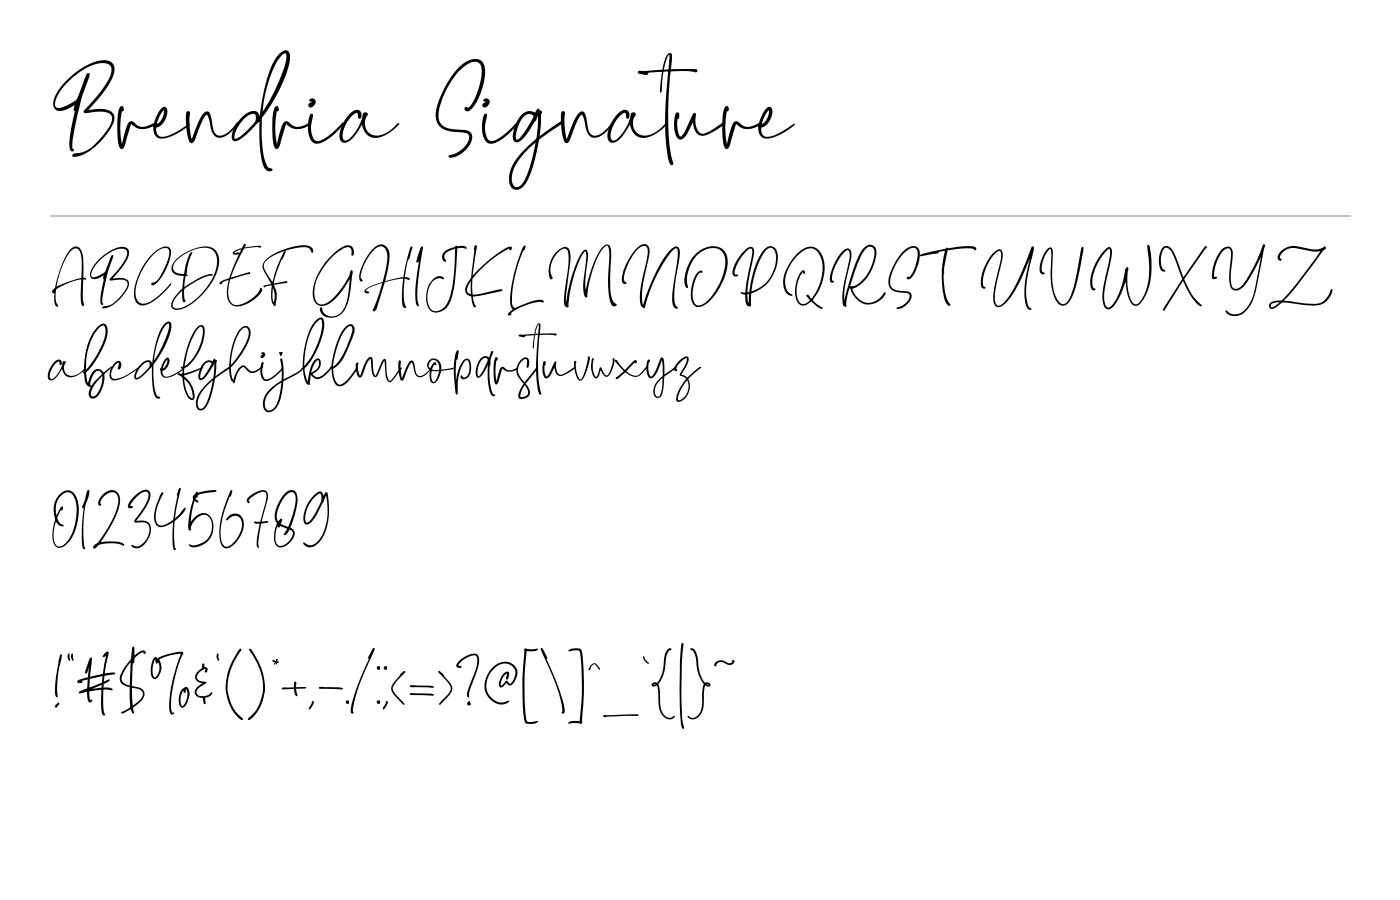 Brendria Signature
ABCDEFGHIJKLMNOPQRSTUVWXYZ
abcdefghijklmnopqrstuvwxyz
0123456789
!"#$%&'()*+,-./:;<=>?@[\]^_`{|}~